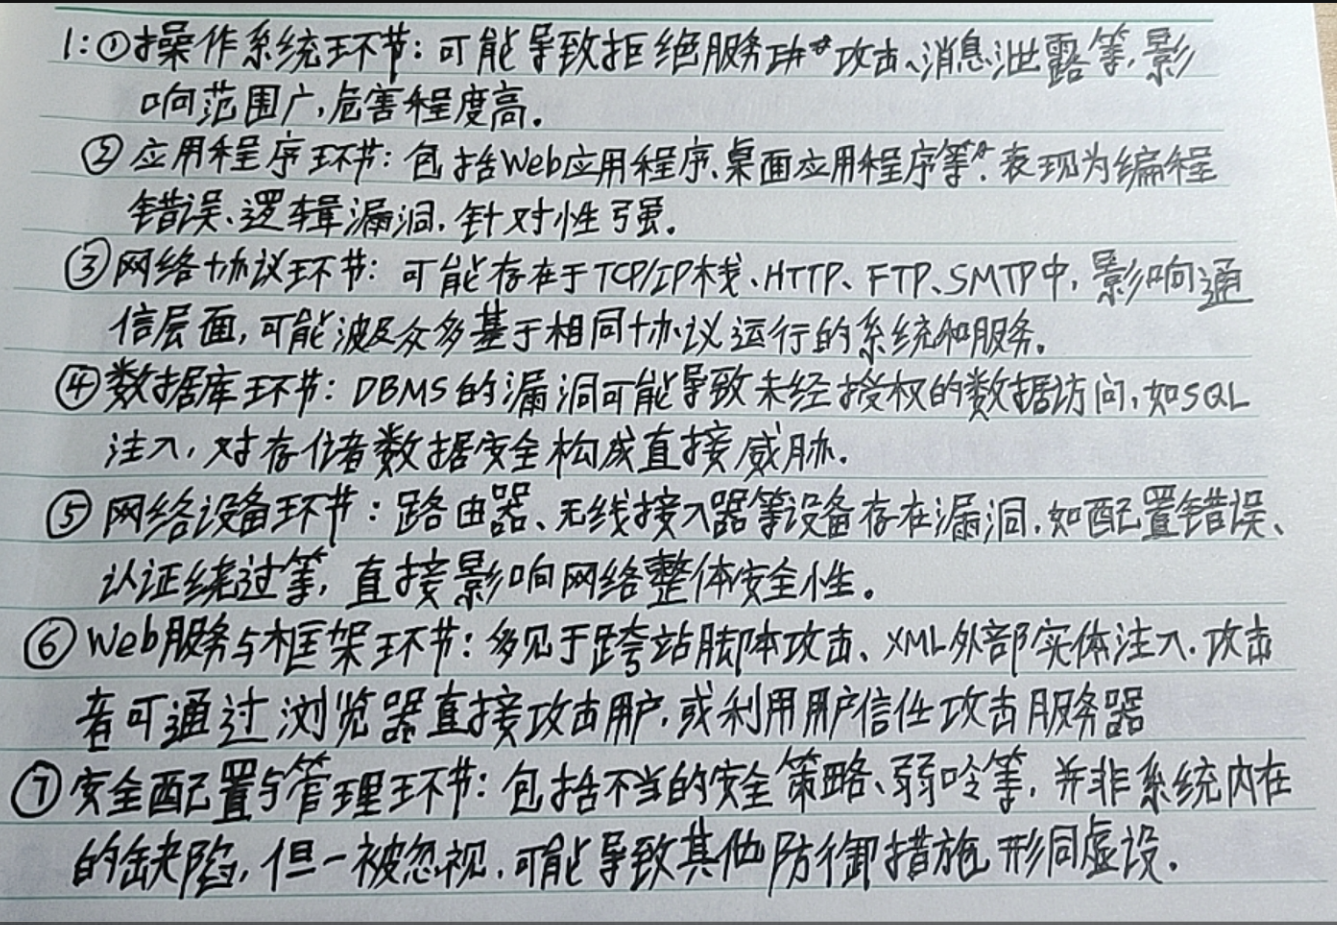 1:①操作系统环节:可能导致拒绝服务攻击、消息泄露等,影
响范围广,危害程度高.
②应用程序环节:包括Web应用程序、桌面应用程序等.表现为编程
错误、逻辑漏洞.针对性强.
③网络协议环节:可能存在于TCP/IP栈、HTTP、FTP、SMTP中,影响通
信层面,可能波及众多基于相同协议运行的系统和服务.
④数据库环节:DBMS的漏洞可能导致未经授权的数据访问,如SQL
注入,对存储数据安全构成直接威胁.
⑤网络设备环节:路由器、无线接入器等设备存在漏洞.如配置错误、
认证绕过等,直接影响网络整体安全性。
⑥Web服务与框架环节:多见于跨站脚本攻击、XML外部实体注入.攻击
者可通过浏览器直接攻击用户,或利用用户信任攻击服务器
⑦安全配置与管理环节:包括不当的安全策略、弱呤等,并非系统内在
的缺陷,但一被忽视,可能导致其他防御措施形同虚设.